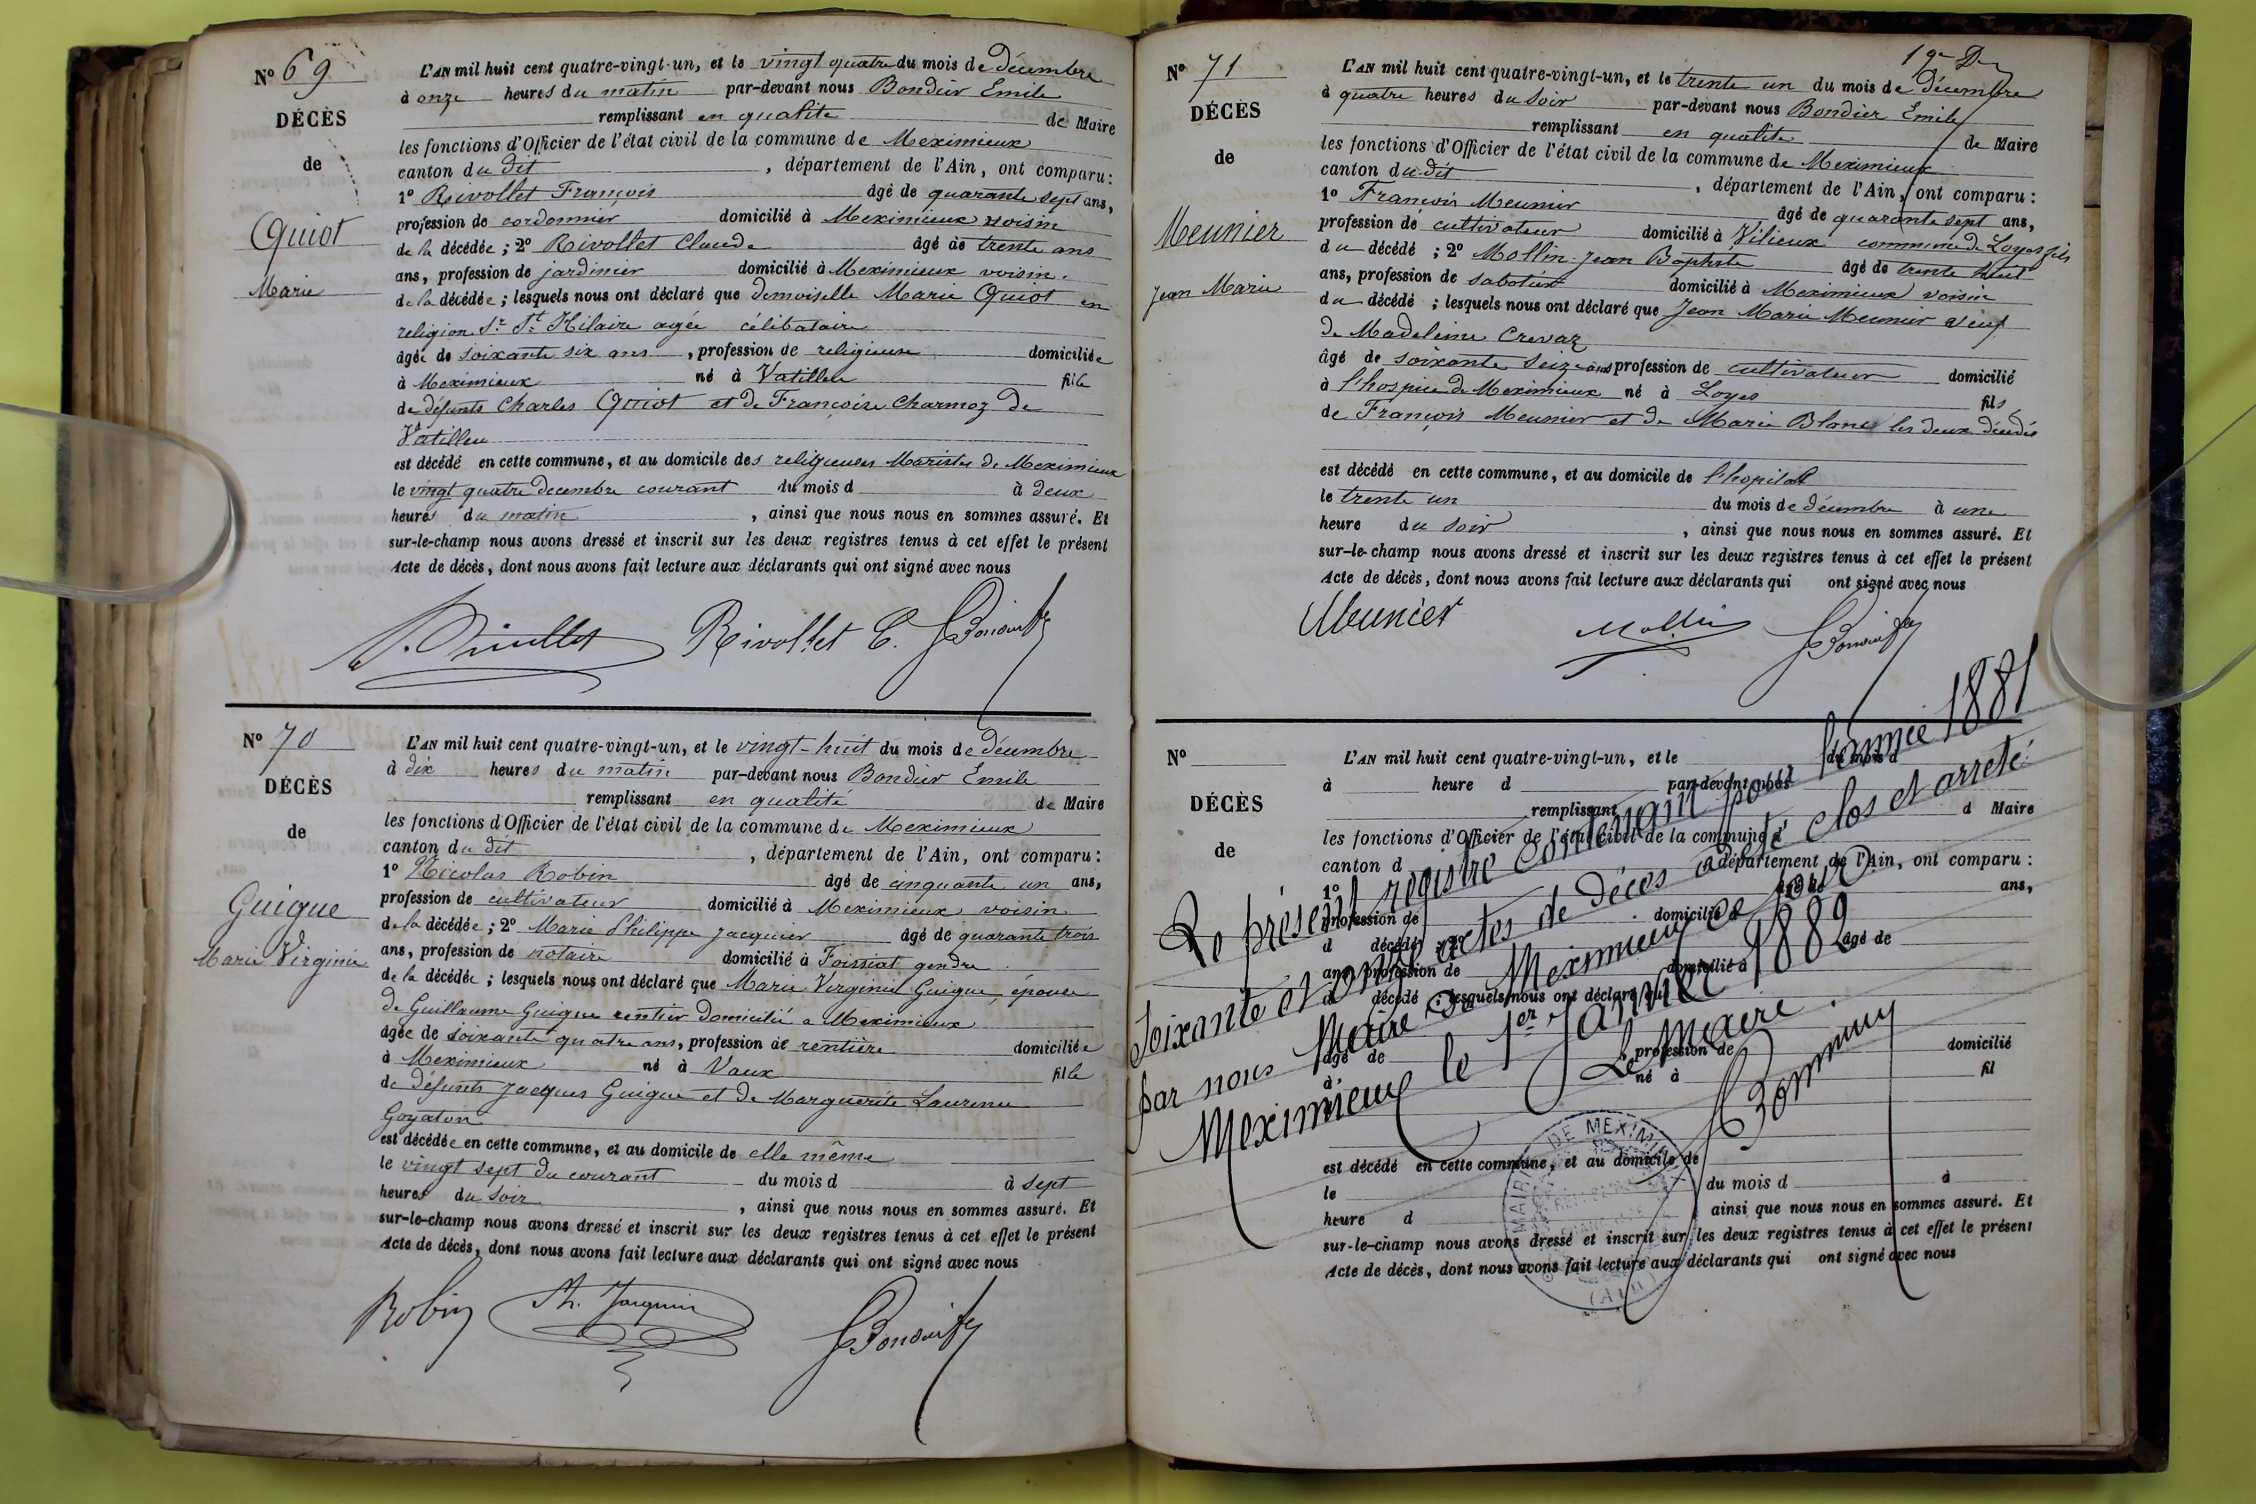 Nº 69
DÉCÈS
de
Quiot
Marie
L'AN mil huit cent quatre-vingt-un, et le vingt quatre du mois de décembre
à onze heures du matin par-devant nous Bondier Emile
remplissant en qualité de Maire
les fonctions d'Officier de l'état civil de la commune de Meximieux
canton du dit , département de l'Ain, ont comparu :
1º Rivollet François âgé de quarante sept ans,
profession de cordonnier domicilié à Meximieux voisin
de la décédée ; 2º Rivollet Claude âgé de trente ans
ans, profession de jardinier domicilié à Meximieux voisin.
de la décédée ; lesquels nous ont déclaré que demoiselle Marie Quiot en
religion Sr St Hilaire agée célibataire
âgée de soixante six ans , profession de religieuse domiciliée
à Meximieux né à Vatilieu fille
de défunts Charles Quiot et de Françoise Charmoz de
Vatilieu
est décédé en cette commune, et au domicile des religieuses Maristes de Meximieux
le vingt quatre decembre courant du mois d à deux
heures du matin , ainsi que nous nous en sommes assuré. Et
sur-le-champ nous avons dressé et inscrit sur les deux registres tenus à cet effet le présent
Acte de décès, dont nous avons fait lecture aux déclarants qui ont signé avec nous
Rivollet C.
Nº 70
DÉCÈS
de
Guigue
Marie Virginie
L'AN mil huit cent quatre-vingt-un, et le vingt-huit du mois de décembre
à dix heures du matin par-devant nous Bondier Emile
remplissant en qualité de Maire
les fonctions d'Officier de l'état civil de la commune de Meximieux
canton du dit , département de l'Ain, ont comparu :
1º Nicolas Robin âgé de cinquante un ans,
profession de cultivateur domicilié à Meximieux voisin
de la décédée ; 2º Marie Philippe Jacquier âgé de quarante trois
ans, profession de notaire domicilié à Foissiat gendre
de la décédée ; lesquels nous ont déclaré que Marie Virginie Guigue, épouse
de Guillaume Guigue rentier domicilié a Meximieux
âgée de soixante quatre ans, profession de rentière domiciliée
à Meximieux né à Vaux fille
de défunts Jacques Guigue et de Marguerite Laurence
Goyaton
est décédée en cette commune, et au domicile de elle même
le vingt sept du courant du mois d à sept
heures du soir , ainsi que nous nous en sommes assuré. Et
sur-le-champ nous avons dressé et inscrit sur les deux registres tenus à cet effet le présent
Acte de décès, dont nous avons fait lecture aux déclarants qui ont signé avec nous
Robin
Nº 71
DÉCÈS
de
Meunier
Jean Marie
L'AN mil huit cent quatre-vingt-un, et le trente un du mois de décembre
à quatre heures du soir par-devant nous Bondier Emile
remplissant en qualité de Maire
les fonctions d'Officier de l'état civil de la commune de Meximieux
canton du dit , département de l'Ain, ont comparu :
1º François Meunier âgé de quarante sept ans,
profession de cultivateur domicilié à Vilieux commune de Loyes fils
du décédé ; 2º Mollin Jean Baptiste âgé de trente huit
ans, profession de sabotier domicilié à Meximieux voisin
du décédé ; lesquels nous ont déclaré que Jean Marie Meunier veuf
de Madeleine Crevaz
âgé de soixante seize ans profession de cultivateur domicilié
à l'hospice de Meximieux né à Loyes fils
de François Meunier et de Marie Blanc les deux décédés
est décédé en cette commune, et au domicile de l'hopital
le trente un du mois de décembre à une
heure du soir , ainsi que nous nous en sommes assuré. Et
sur-le-champ nous avons dressé et inscrit sur les deux registres tenus à cet effet le présent
Acte de décès, dont nous avons fait lecture aux déclarants qui ont signé avec nous
Meunier
Mollin
Nº
DÉCÈS
de
L'AN mil huit cent quatre-vingt-un, et le du mois d
à heure d par-devant nous
remplissant d Maire
les fonctions d'Officier de l'état civil de la commune d
canton d , département de l'Ain, ont comparu :
1º âgé de ans,
profession de domicilié à
d décédé ; 2º âgé de
ans, profession de domicilié à
d décédé ; lesquels nous ont déclaré que
âgé de profession de domicilié
à né à fil
est décédé en cette commune, et au domicile de
le du mois d à
heure d ainsi que nous nous en sommes assuré. Et
sur-le-champ nous avons dressé et inscrit sur les deux registres tenus à cet effet le présent
Acte de décès, dont nous avons fait lecture aux déclarants qui ont signé avec nous
Le présent registre contenant pour l'année 1881
soixante et onze actes de décès a été clos et arrêté
par nous Maire de Meximieux ce jourd.
Meximieux le 1er Janvier 1882
Le Maire
MAIRIE DE MEXIMIEUX
(AIN)